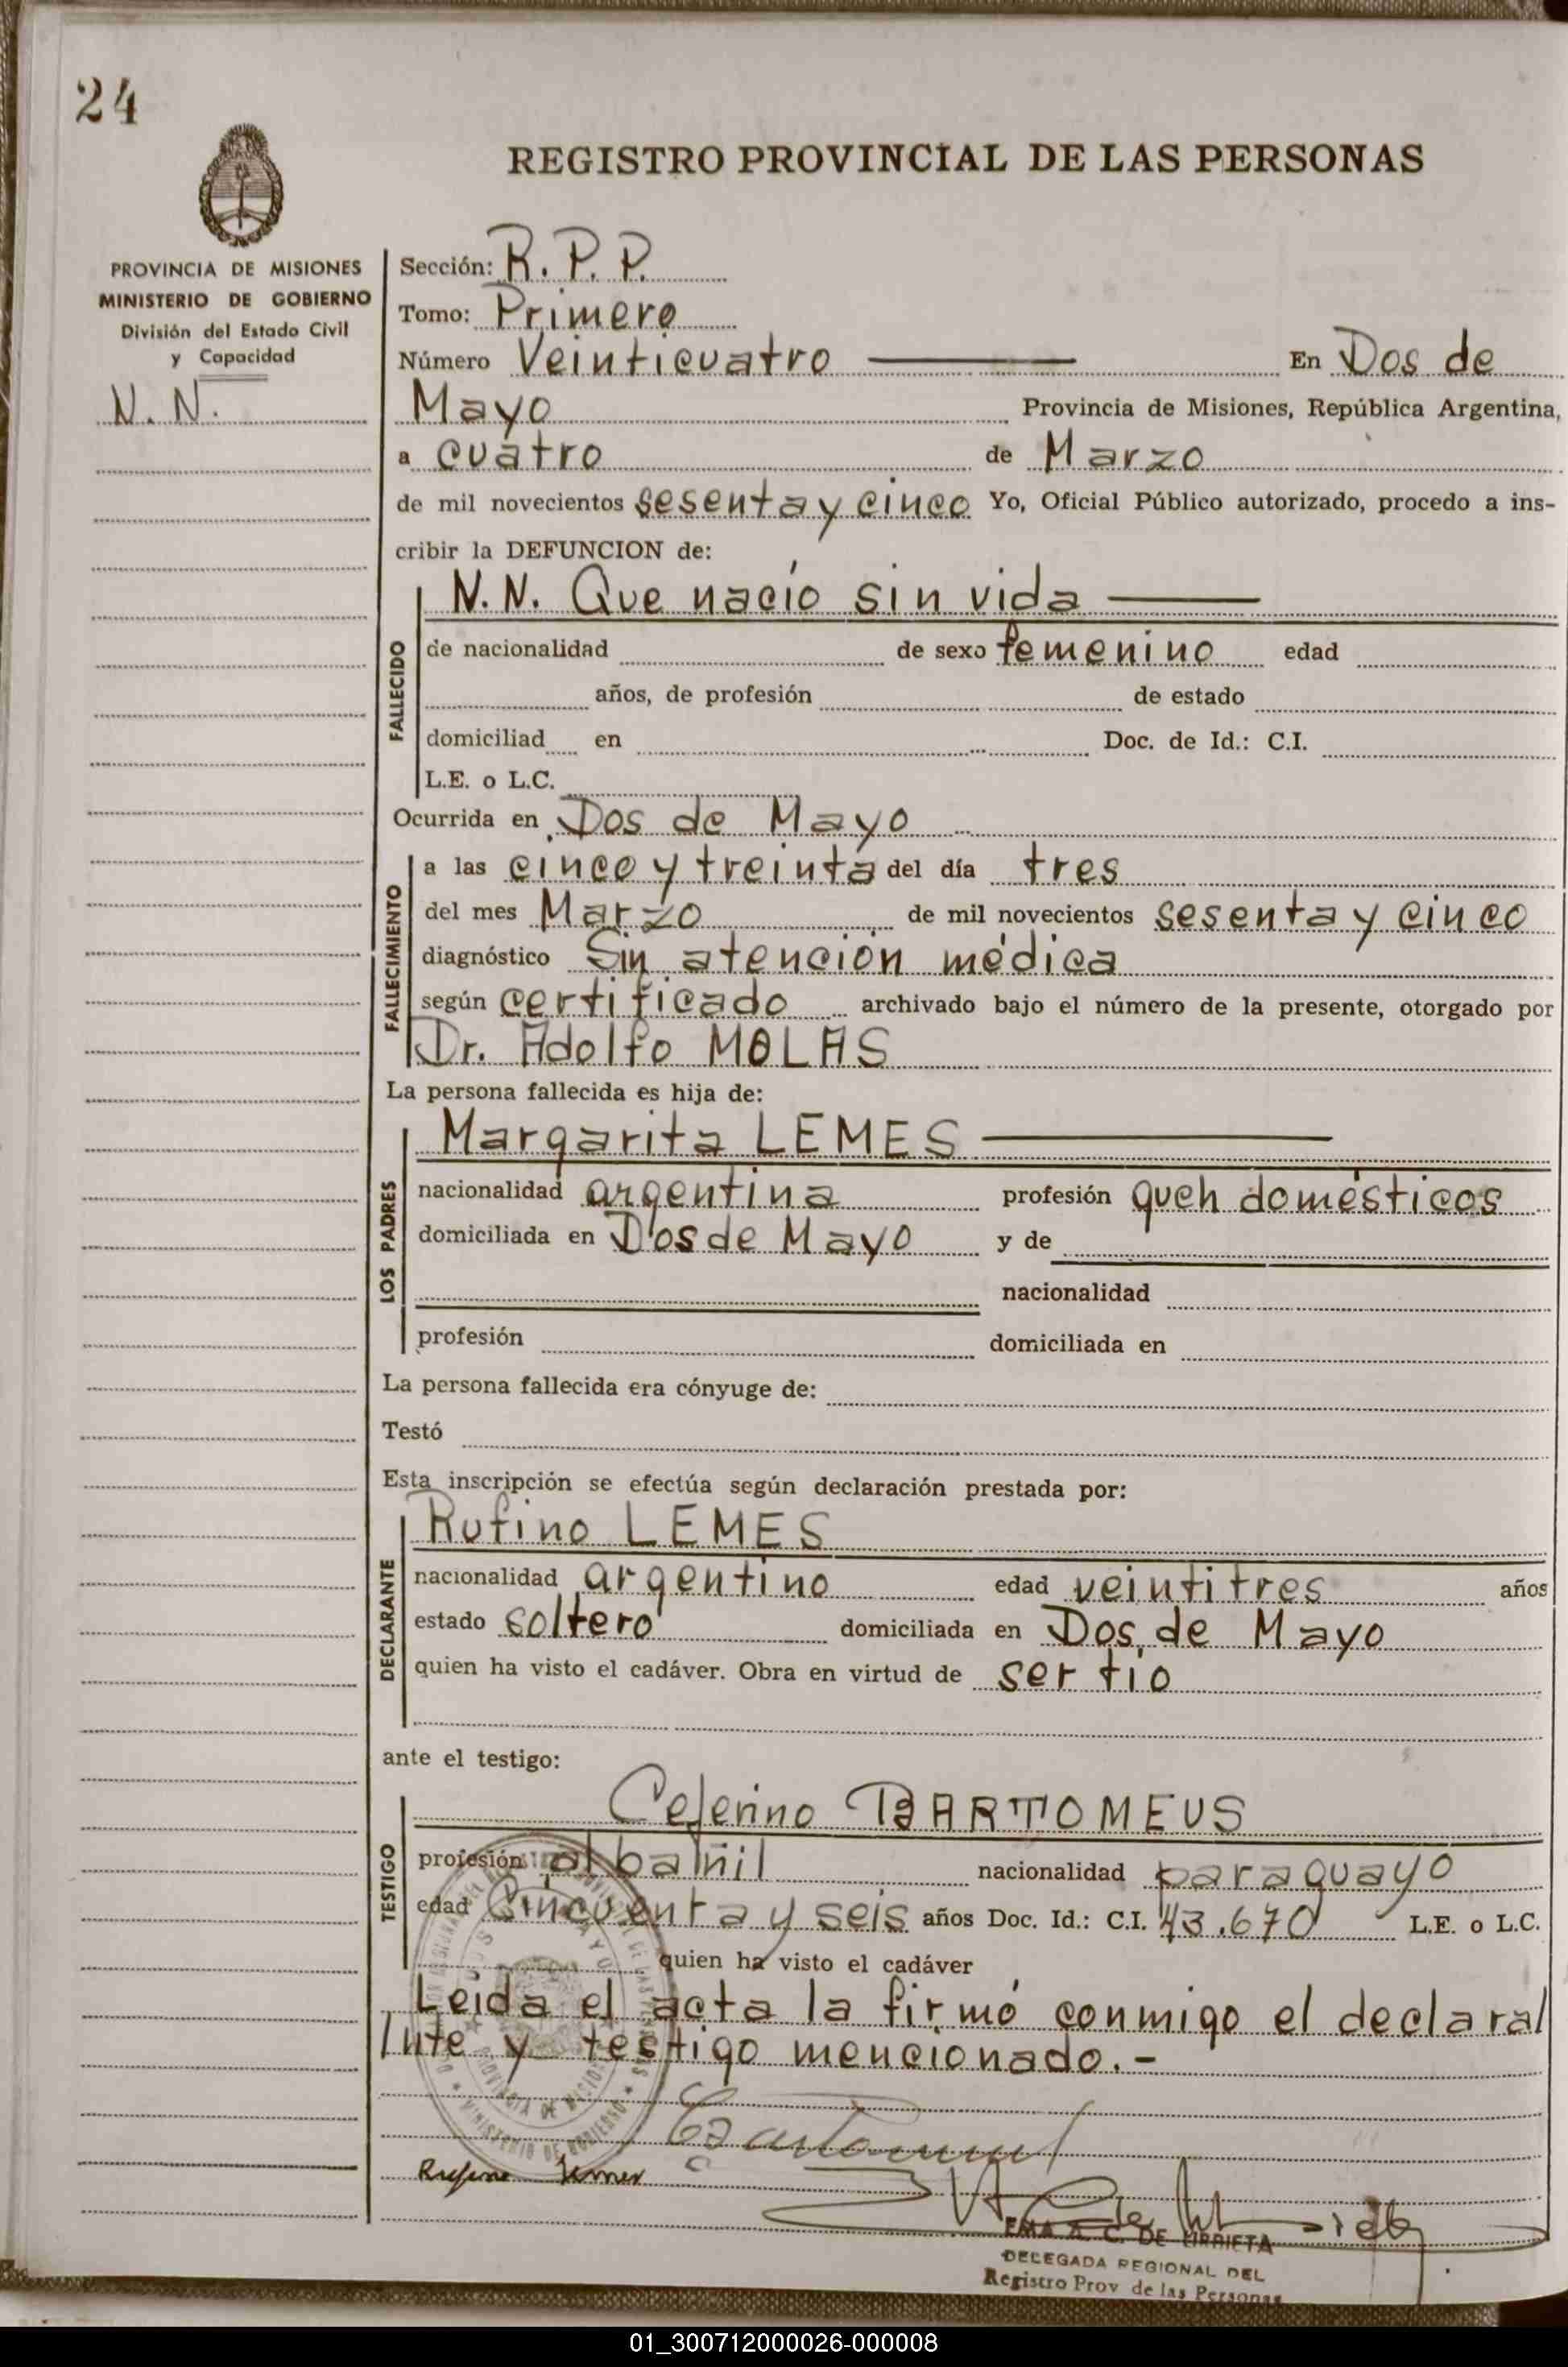 24
REGISTRO PROVINCIAL DE LAS PERSONAS
PROVINCIA DE MISIONES
MINISTERIO DE GOBIERNO
División del Estado Civil
y Capacidad
N. N.
Sección: R. P. P.
Tomo: Primero
Número Veinticuatro En Dos de
Mayo Provincia de Misiones, República Argentina,
a cuatro de Marzo
de mil novecientos sesenta y cinco Yo, Oficial Público autorizado, procedo a ins-
cribir la DEFUNCION de:
FALLECIDO
N. N. Que nació sin vida
de nacionalidad de sexo femenino edad
años, de profesión de estado
domiciliad en Doc. de Id.: C.I.
L.E. o L.C.
Ocurrida en Dos de Mayo
FALLECIMIENTO
a las cinco y treinta del día tres
del mes Marzo de mil novecientos sesenta y cinco
diagnóstico Sin atención médica
según certificado archivado bajo el número de la presente, otorgado por
Dr. Adolfo MOLAS
La persona fallecida es hija de:
LOS PADRES
Margarita LEMES
nacionalidad argentina profesión queh domésticos
domiciliada en Dos de Mayo y de
nacionalidad
profesión domiciliada en
La persona fallecida era cónyuge de:
Testó
Esta inscripción se efectúa según declaración prestada por:
DECLARANTE
Rufino LEMES
nacionalidad argentino edad veintitres años
estado soltero domiciliada en Dos de Mayo
quien ha visto el cadáver. Obra en virtud de ser tío
ante el testigo:
TESTIGO
Ceferino BARTOMEUS
profesión albañil nacionalidad paraguayo
edad Cincuenta y seis años Doc. Id.: C.I. 43.670 L.E. o L.C.
quien ha visto el cadáver
Leida el acta la firmó conmigo el declara
nte y testigo mencionado.-
Rufino Lemes
EMA A. C. DE URRIETA
DELEGADA REGIONAL DEL
Registro Prov de las Personas
01_300712000026-000008